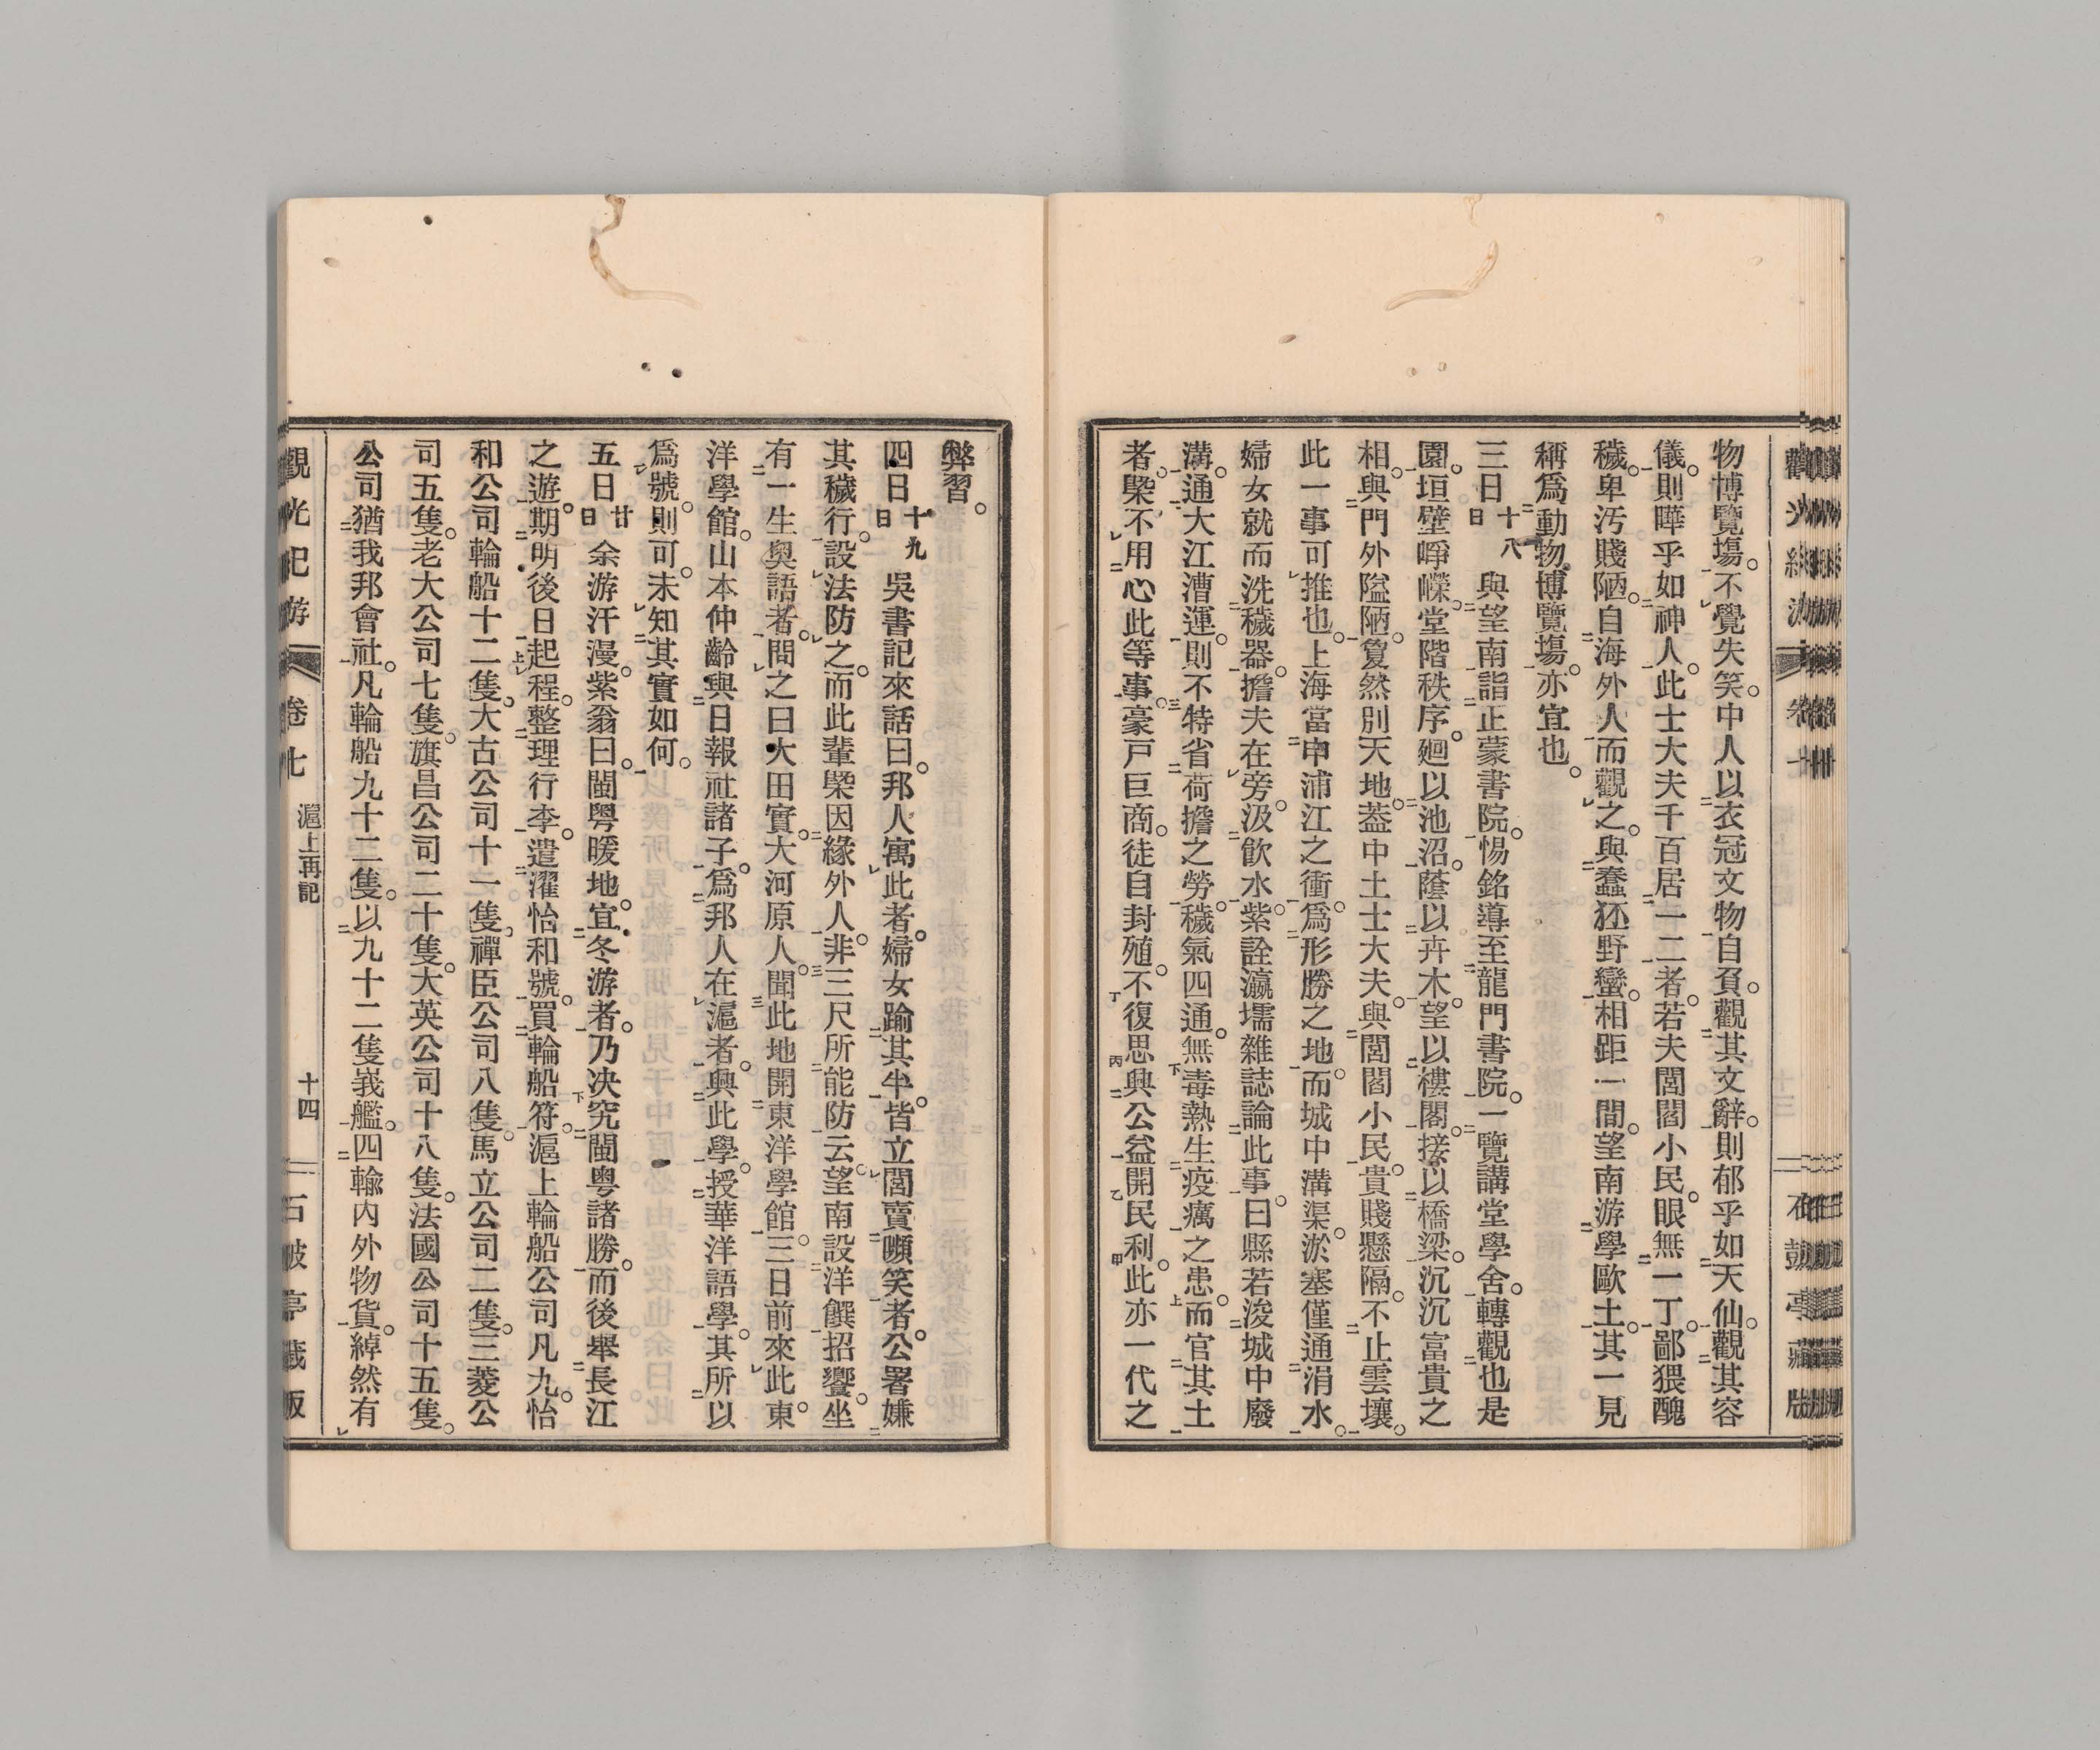 物博覽場。不覺失笑。中人以衣冠文物自負。觀其文辭。則郁乎如天仙。觀其容
儀。則曄乎如神人。此士大夫千百居一二者。若夫閭閻小民。眼無一丁。鄙猥醜
穢。卑汚賤陋。自海外人而觀之。與蠢狉野蠻。相距一間。望南游學歐土。其一見
稱爲動物博覽場。亦宜也。
三日十八日 與望南詣正蒙書院。惕銘導至龍門書院。一覽講堂學舍。轉觀也是
園。垣壁崢嶸。堂階秩序。廻以池沼。蔭以卉木。望以樓閣。接以橋梁。沉沉富貴之
相。與門外隘陋。夐然別天地。葢中土士大夫。與閭閻小民。貴賤懸隔。不止雲壤。
此一事可推也。上海當申浦江之衝。爲形勝之地。而城中溝渠。淤塞僅通涓水。
婦女就而洗穢器。擔夫在旁。汲飲水。紫詮瀛壖雜誌論此事。曰縣若浚城中廢
溝。通大江漕運。則不特省荷擔之勞。穢氣四通。無毒熱生疫癘之患。而官其土
者。槩不用心此等事。豪戸巨商。徒自封殖。不復思興公益開民利。此亦一代之
弊習。
四日十九日 吳書記來話曰。邦人寓此者。婦女踰其半。皆立閭賣嚬笑者。公署嫌
其穢行。設法防之。而此輩槩因緣外人。非三尺所能防云。望南設洋饌招饗。坐
有一生奧語者。問之曰大田實。大河原人。聞此地開東洋學館。三日前來此。東
洋學館。山本仲齡與日報社諸子。爲邦人在滬者。興此學。授華洋語學。其所以
爲號。則可。未知其實如何。
五日廿日 余游汗漫。紫翁曰。閩粤暖地。宜冬游者。乃决究閩粤諸勝。而後舉長江
之遊。期明後日起程。整理行李。遣濯怡和號。買輪船符。滬上輪船公司凡九。怡
和公司輪船十二隻。大古公司十一隻。禪臣公司八隻。馬立公司二隻。三菱公
司五隻。老大公司七隻。旗昌公司二十隻。大英公司十八隻。法國公司十五隻。
公司猶我邦會社。凡輪船九十二隻。以九十二隻峩艦。四輸內外物貨。綽然有
觀光紀游 卷七 滬上再記 十四 石鼓亭藏版